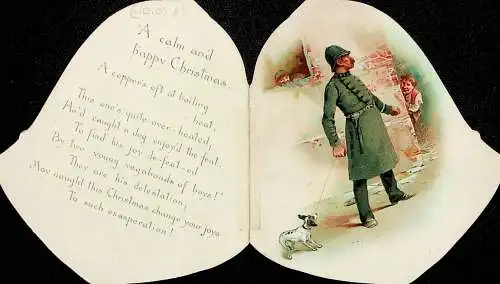 A calm and
happy Christmas.
A copper's oft at boiling
heat,
This one's quite over-heated,
He'd caught a dog enjoy'd the feat,
To find his joy de-feat-ed
By two young vagabonds of boys!
They are his detestation!
May naught this Christmas change your joys
To such exasperation!